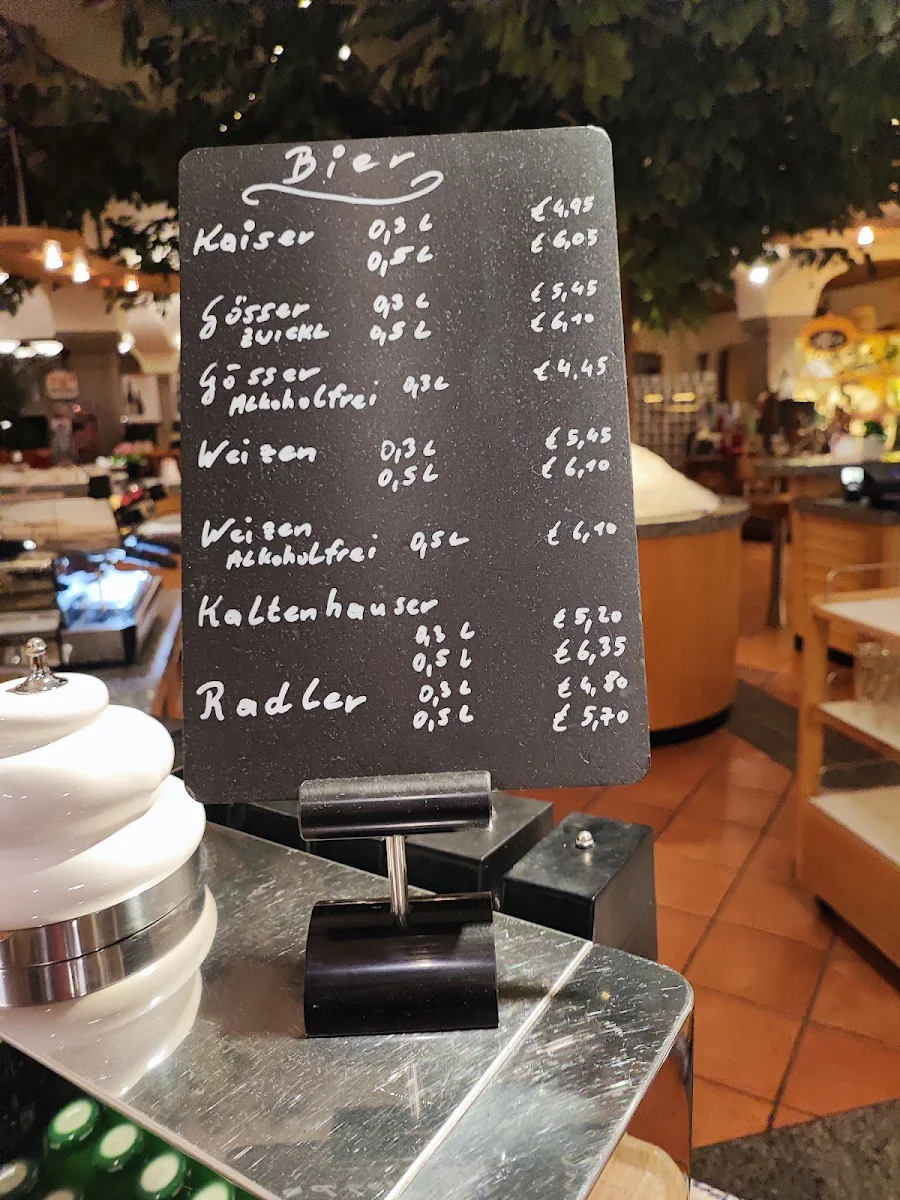 Bier
Kaiser 0,3 L € 4,95
0,5 L € 6,05
Gösser 0,3 L € 5,45
ZWICKL 0,5 L € 6,10
Gösser
Alkoholfrei 0,3 L € 4,45
Weizen 0,3 L € 5,45
0,5 L € 6,10
Weizen
Alkoholfrei 0,5 L € 6,10
Kaltenhauser
0,3 L € 5,20
0,5 L € 6,35
Radler 0,3 L € 4,80
0,5 L € 5,70